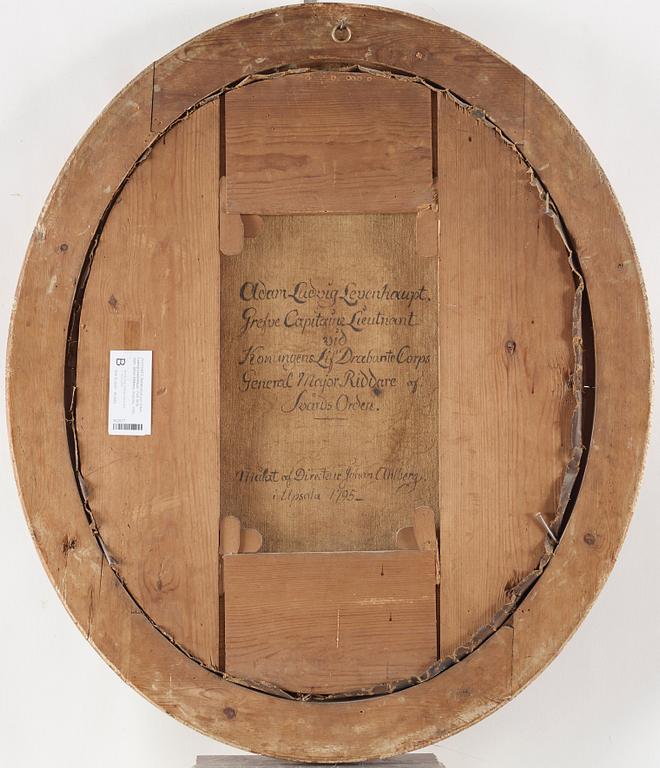 Adam Ludvig Levenhaupt.
Grefve Capitaine Lieutnant
vid
Konungens Lif Drabante Corps
General Major Riddare af
Svärds Orden.
Målat af Directeur Johan C Ahlberg.
i Upsala 1795
B